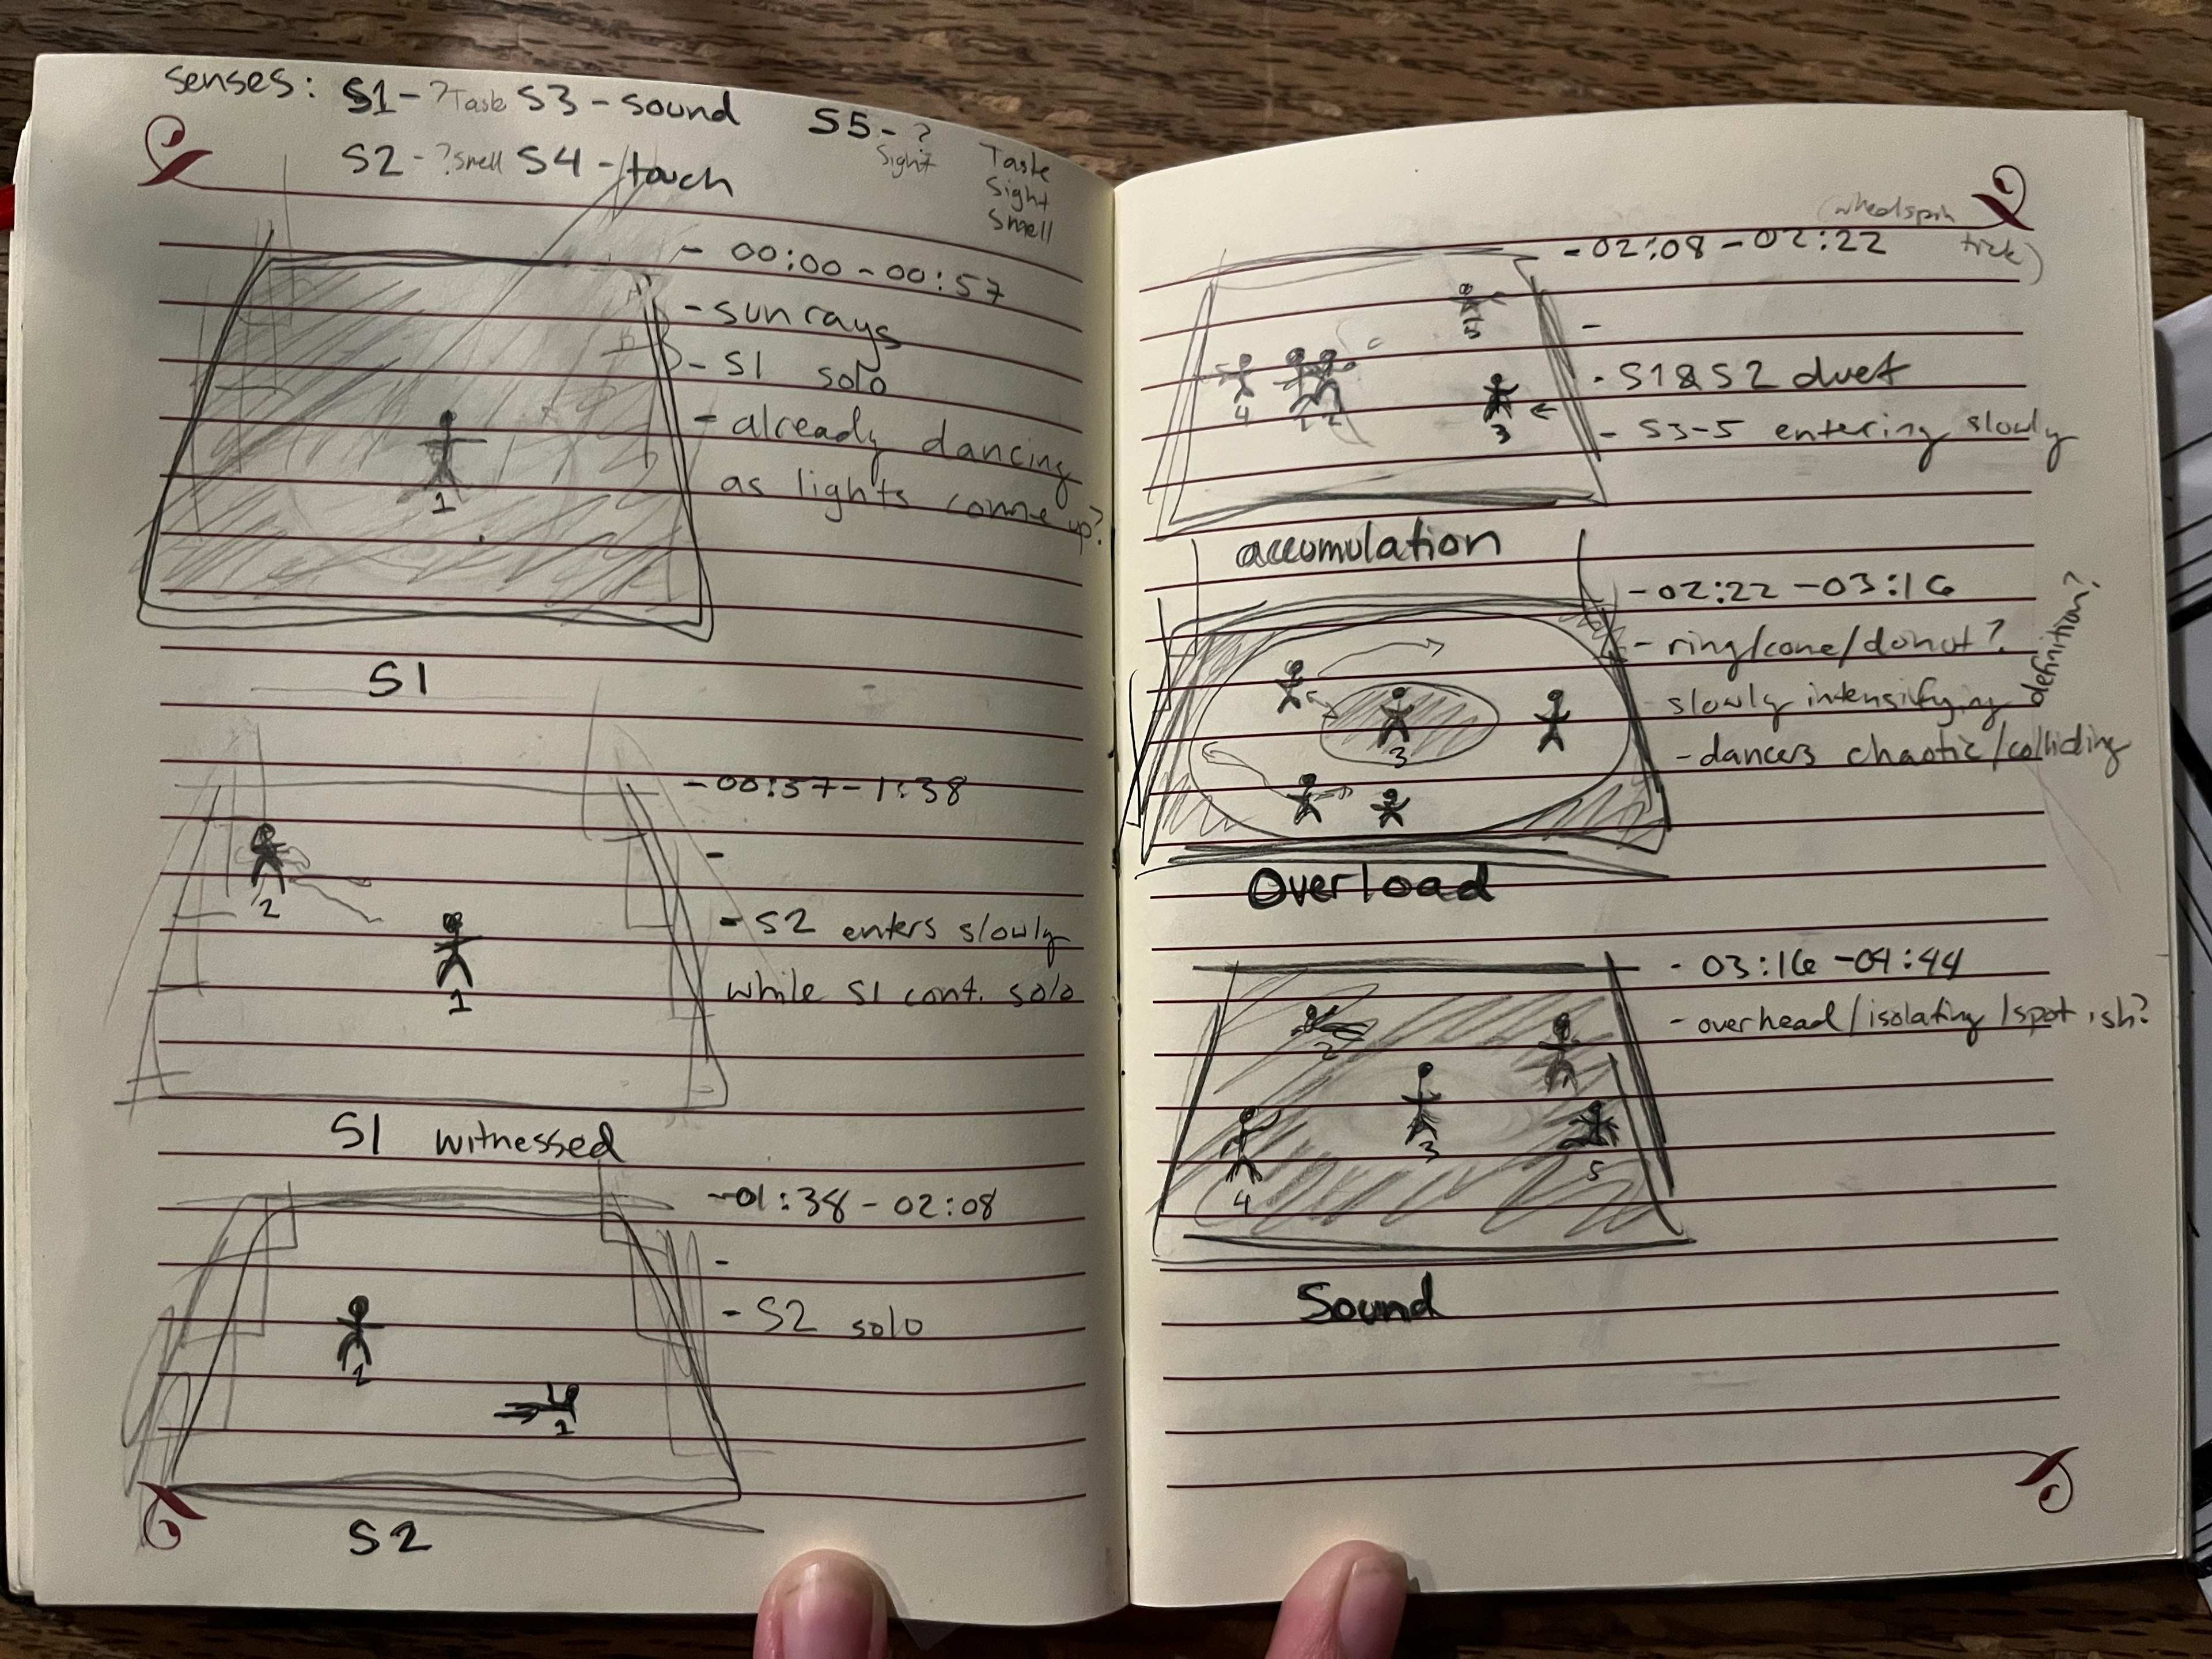 senses: S1-?Taste S3-sound S5-?
Sight
S2-?smell S4-touch
Taste
Sight
Smell
- 00:00-00:57
-sun rays
-S1 solo
-already dancing
as lights come up?
1
S1
-00:57-1:38
-
-S2 enters slowly
while S1 cont. solo
2
1
S1 witnessed
-01:38-02:08
-
-S2 solo
2
1
S2
(wheelspin
trick)
-02:08-02:22
-
-S1&S2 duet
-S3-5 entering slowly
5
4
1 2
3
accumulation
-02:22-03:16
-ring/cone/donut?
definition?
-slowly intensifying
-dancers chaotic/colliding
3
Overload
-03:16-04:44
-overhead/isolating/spot ish?
2
3
4
5
Sound